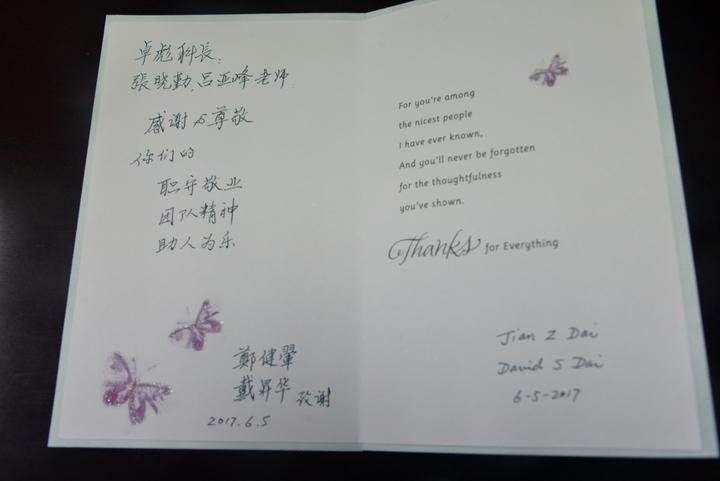 卓彪科长:
张晓勤、吕亚峰老师
感谢与尊敬
你们的
职守敬业
团队精神
助人为乐
鄭健翬
戴昇华 致谢
2017.6.5
For you're among
the nicest people
I have ever known,
And you'll never be forgotten
for the thoughtfulness
you've shown.
Thanks for Everything
Jian Z Dai
David S Dai
6-5-2017